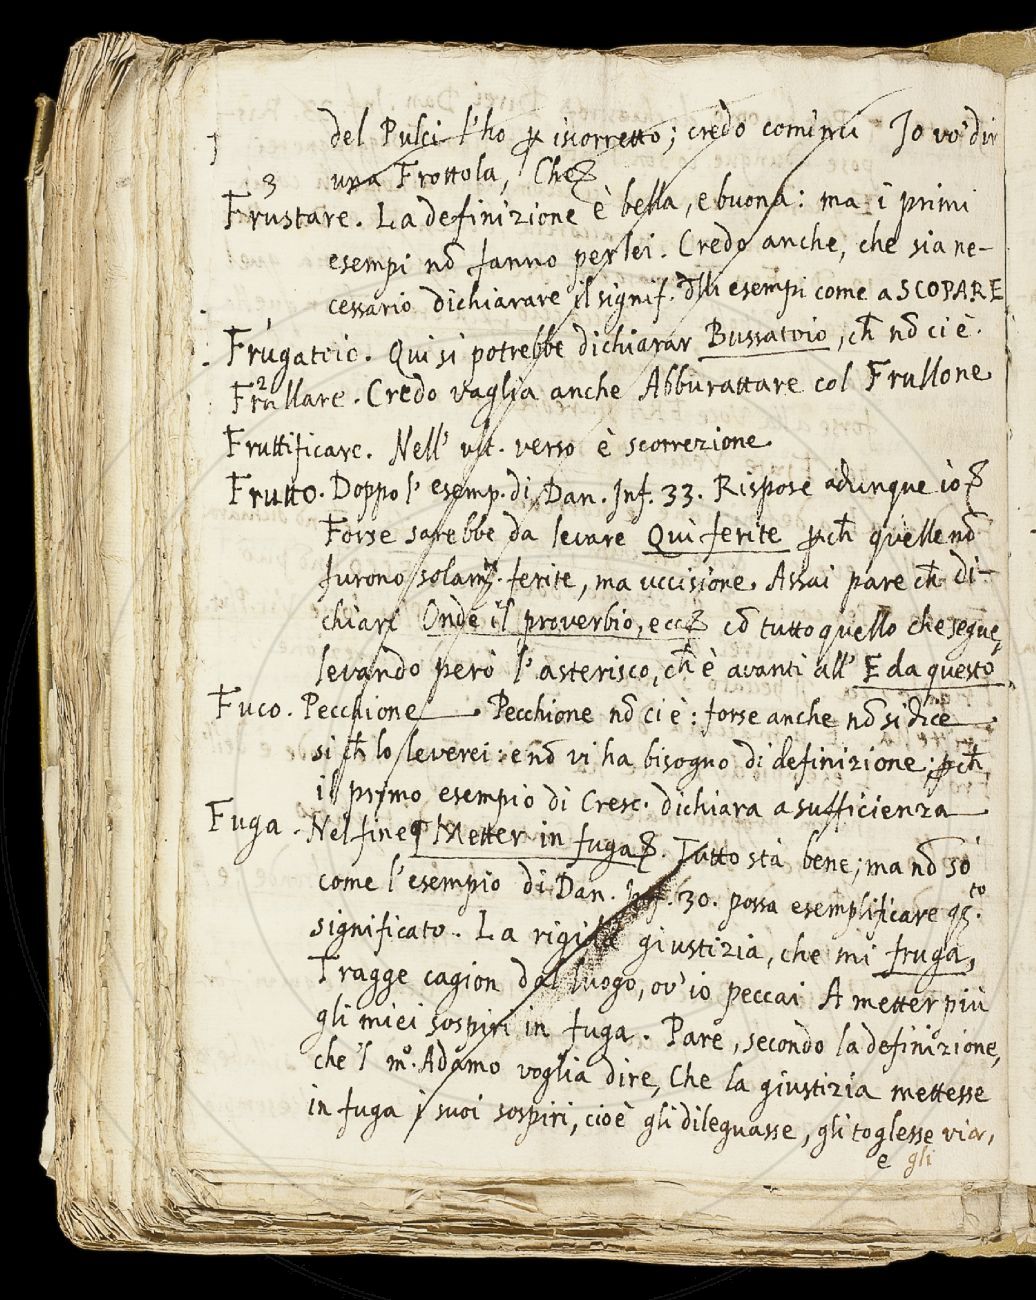 del Pulci l'ho ꝑ iscorretto; credo cominci Io vo' dir
una Frottola, Che
3
Frustare. La definizione è bella, e buona: ma i primi
esempi nō fanno per lei. Credo anche, che sia ne-
cessario dichiarare il signif. dlli esempi come a SCOPARE
1
Frugatoio. Qui si potrebbe dichiarar Bussatoio, ch̄ nō ci è.
2
Frullare. Credo vaglia anche Abburattare col Frullone
Fruttificare. Nell' ult. verso è scorrezione
Frutto. Doppo l' esemp. di Dan. Inf. 33. Rispose adunque iò
Forse sarebbe da levare Quì ferite ꝑch̄ quelle nō
furono solam̃. ferite, ma uccisione. Assai pare ch̄ di-
chiari Onde il proverbio, ecc cō tutto quello che segue,
levando però l'asterisco, ch̄ è avanti all' E da questo
Fuco. Pecchione. Pecchione nō ci è: forse anche nō si dice
si ch̄ lo leverei: e nō vi ha bisogno di definizione: ꝑch̄
il primo esempio di Cresc. dichiara a sufficienza
Fuga. Nel fine Metter in fuga. Tutto stà bene; ma nō sò
come l'esempio di Dan. Inf. 30. possa esemplificare q̃to
significato. La rigida giustizia, che mi fruga,
Tragge cagion dal luogo, ov' io peccai A metter più
gli miei sospiri in fuga. Pare, secondo la definizione,
che 'l mº. Adamo voglia dire, Che la giustizia mettesse
in fuga i suoi sospiri, cioè gli dileguasse, gli toglesse via,
e gli